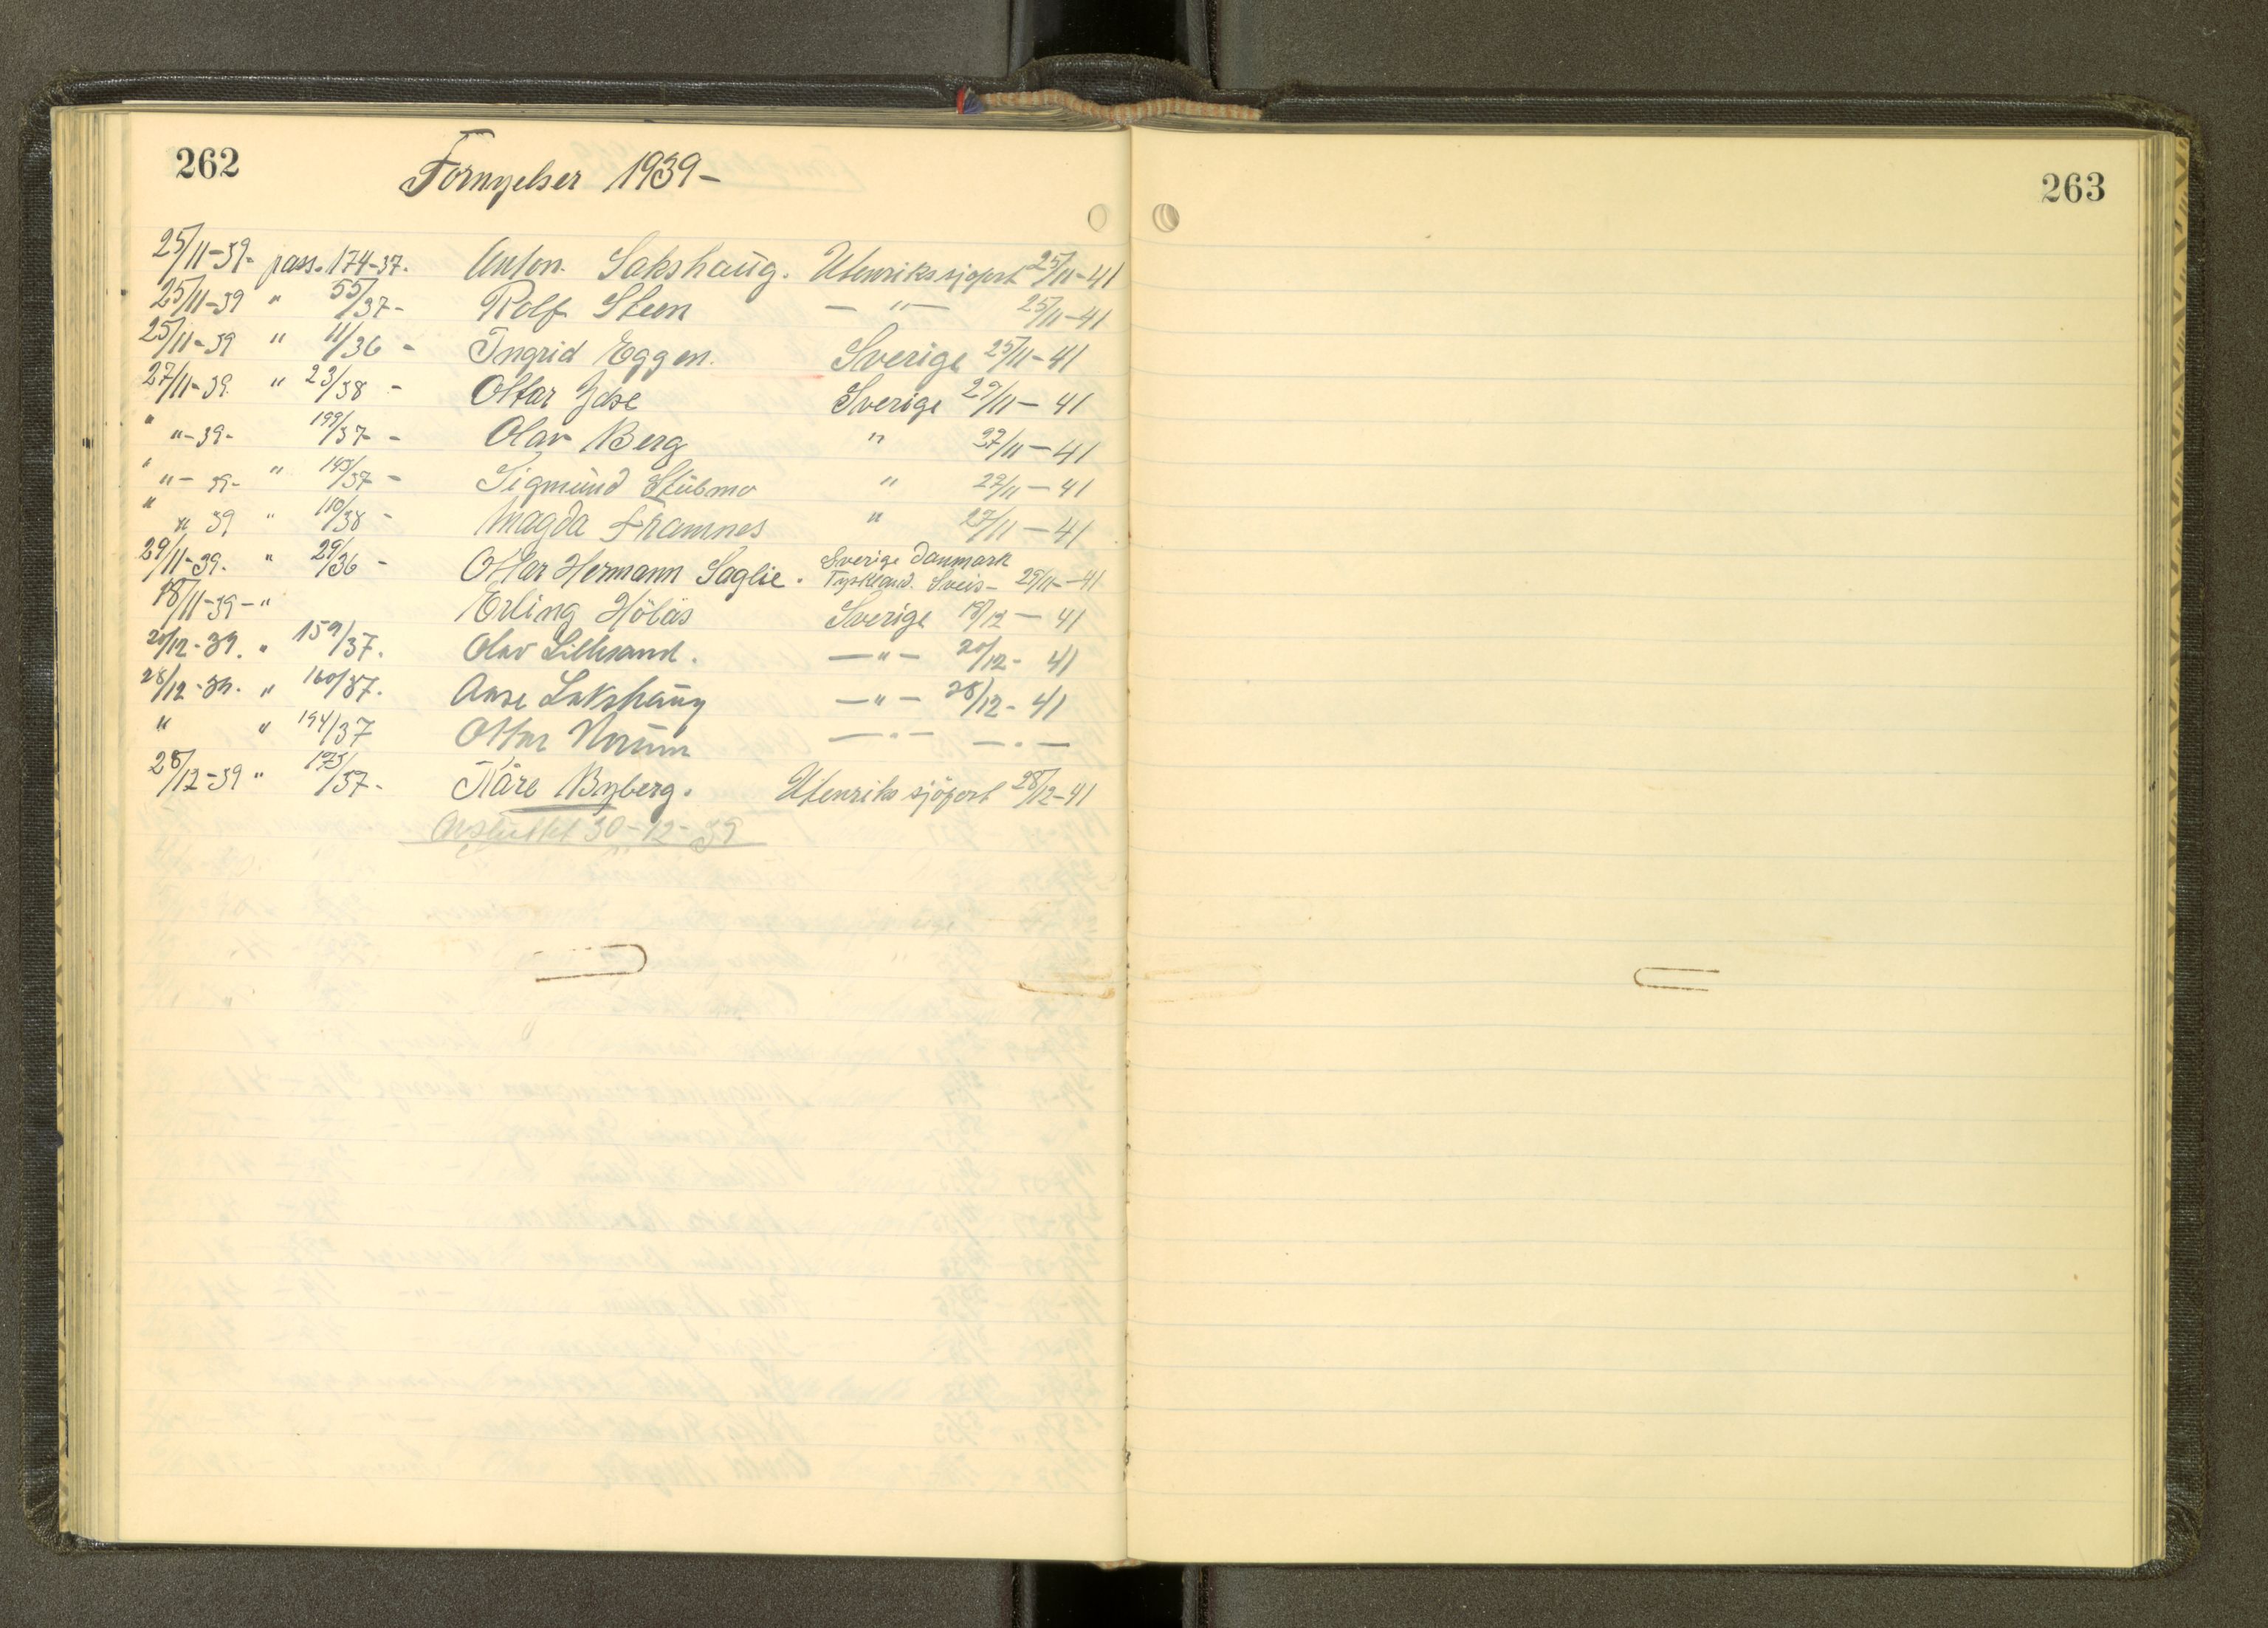 262
Fornyelser 1939-
25/11-39- pass. 174-37. Anton. Sakshaug. Utenrikssjøfart 25/11-41
25/11-39 " 55/37- Rolf Steen - " - 25/11-41
25/11-39 " 11/36 - Ingrid Eggen. Sverige 25/11-41
27/11-39. " 23/38 - Ottar Ydse Sverige 27/11-41
" "-39- 199/37- - Olav Berg " 27/11-41
" "- 39- " 145/37 - Sigmund Stubmo " 27/11-41
" " 39 " 110/38 - Magda Framnes " 27/11-41
29/11-39. " 29/36 - Ottar Hermann Saglie. Sverige Danmark
Tyskland. Sveis- 29/11-41
18/11-39-" Erling Hölås Sverige 18/12-41
20/12-39. " 159/37. Olav Lillesand. -"- 20/12-41
28/12-39. " 160/37. Aase Sakshaug -"- 28/12-41
" " 194/37 Ottar Norum -"- -"-
28/12-39 " 173/37- Kåre Byberg. Utenriks sjöfart 28/12-41
Avsluttet 30-12-39
263